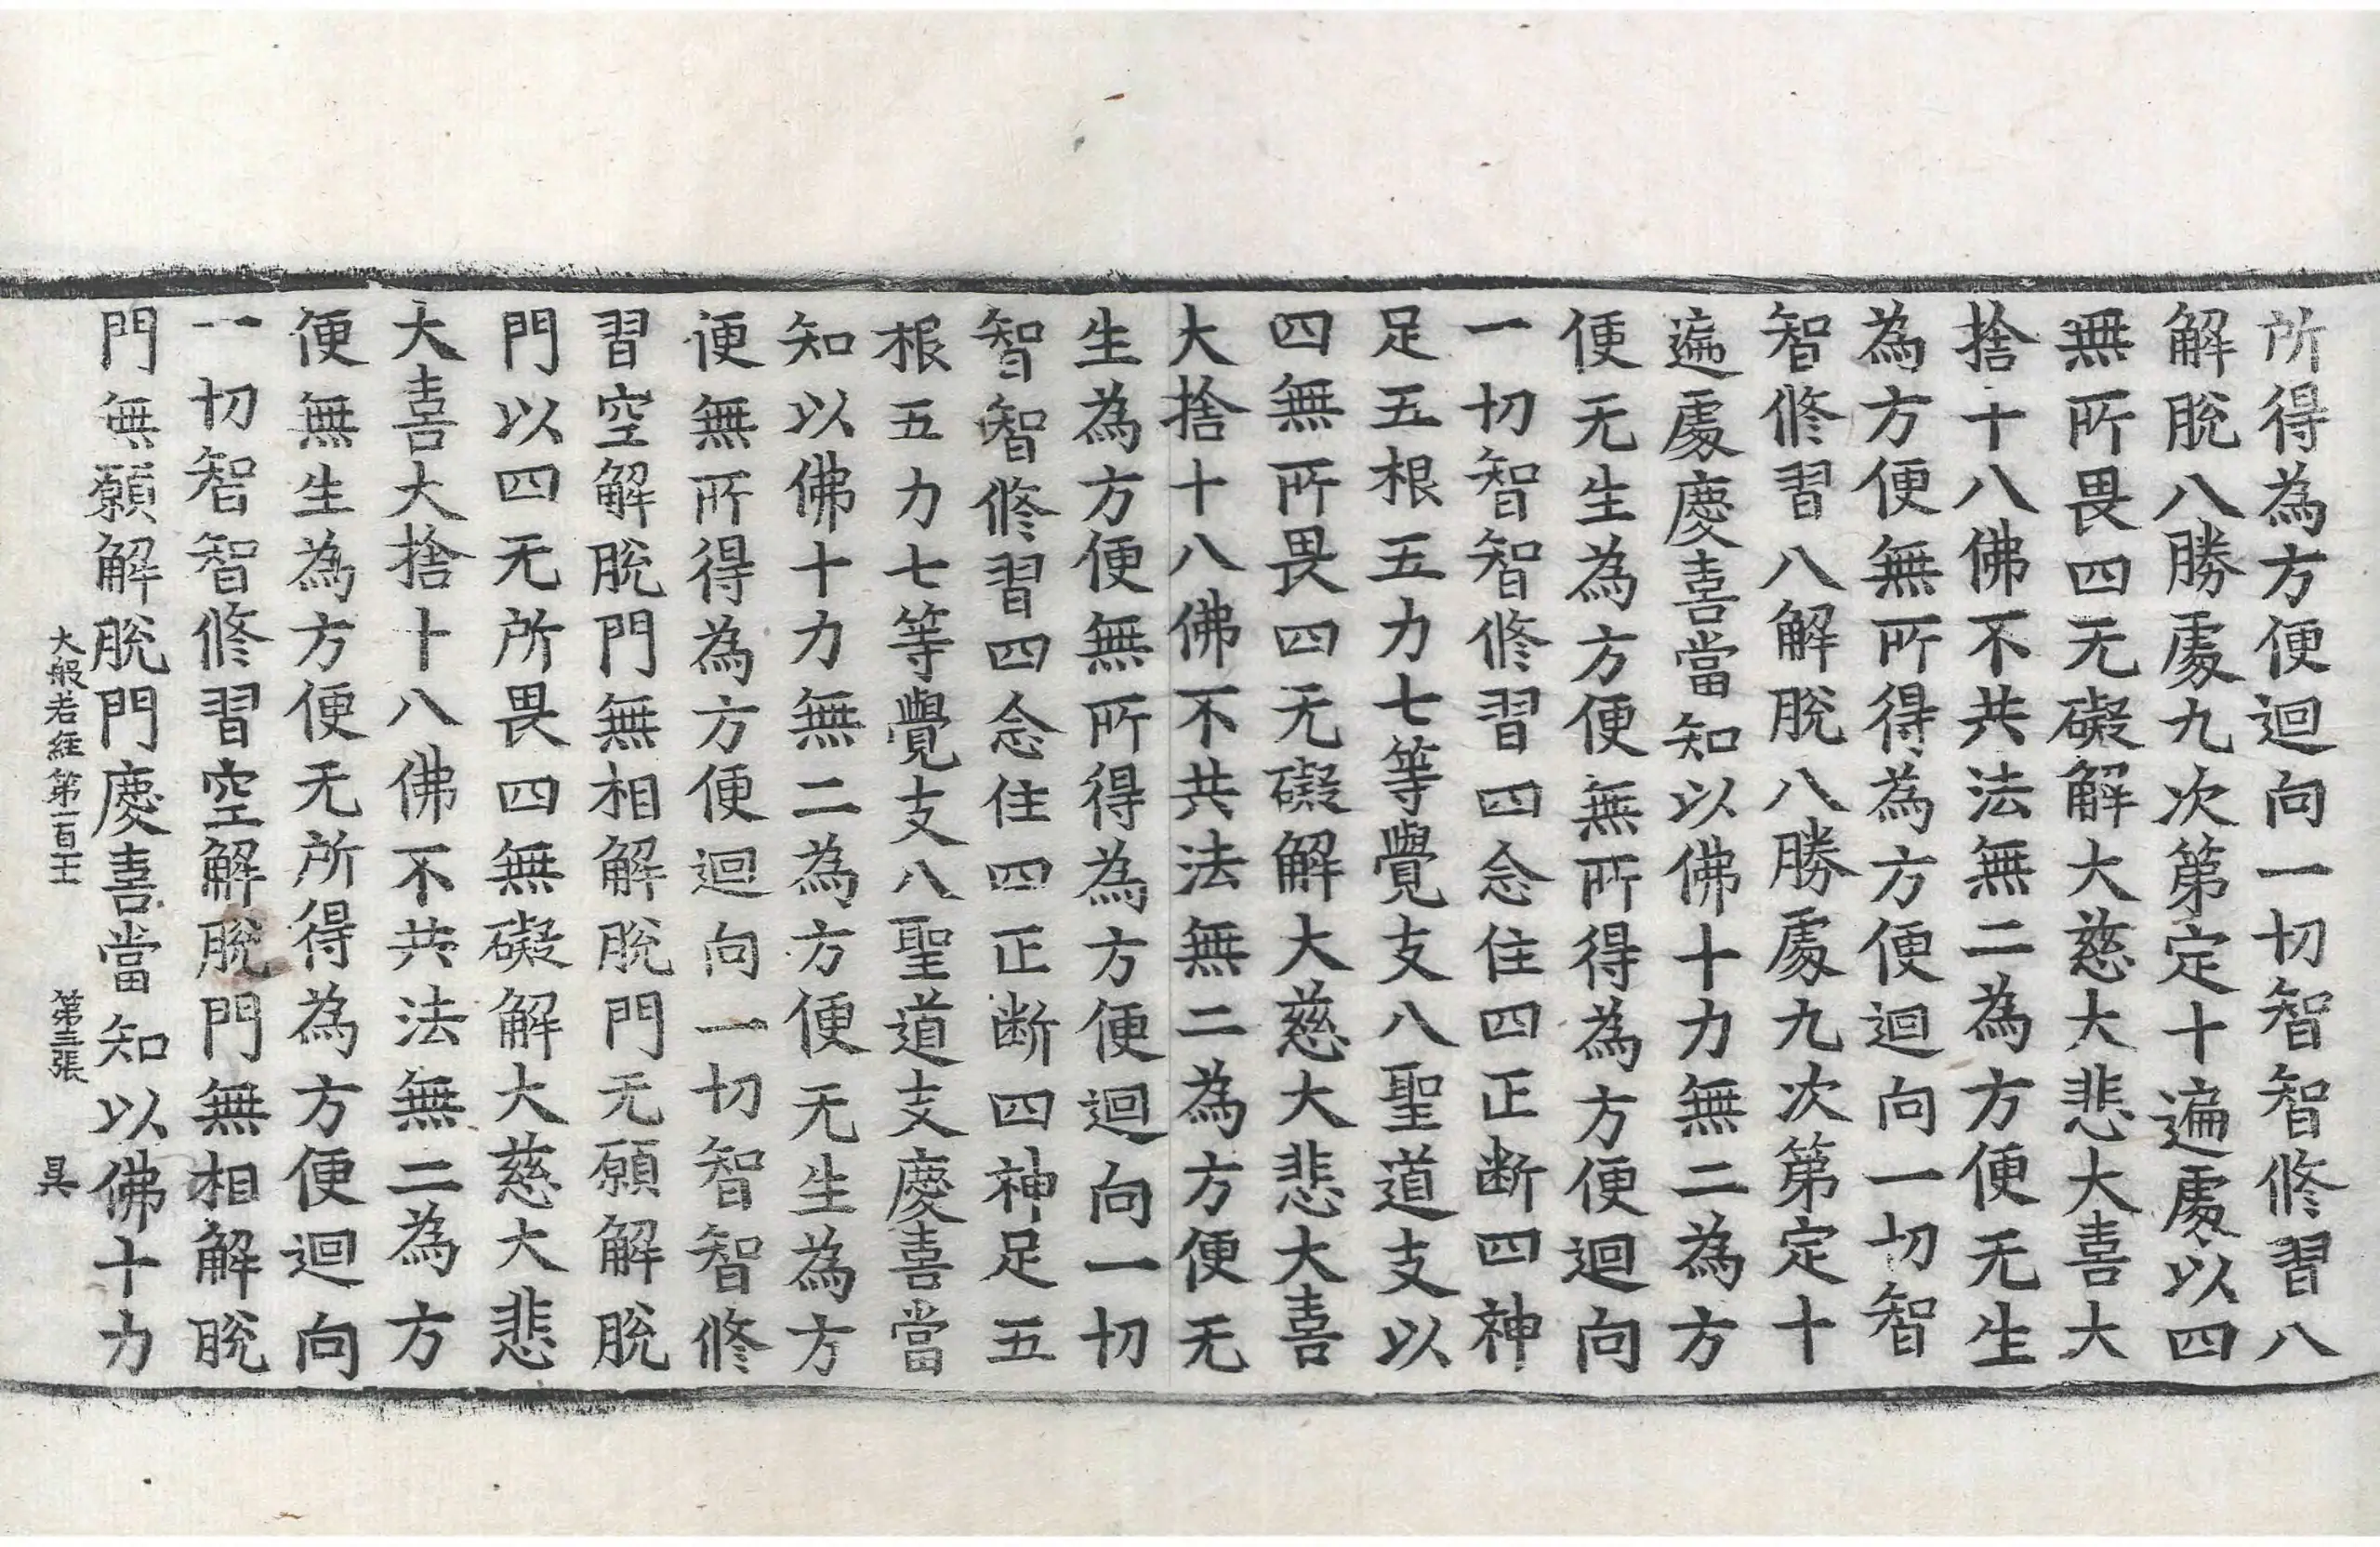 所得為方便迴向一切智智修習八
解脫八勝處九次第定十遍處以四
無所畏四无礙解大慈大悲大喜大
捨十八佛不共法無二為方便无生
為方便無所得為方便迴向一切智
智修習八解脫八勝處九次第定十
遍處慶喜當知以佛十力無二為方
便无生為方便無所得為方便迴向
一切智智修習四念住四正断四神
足五根五力七等覺支八聖道支以
四無所畏四无礙解大慈大悲大喜
大捨十八佛不共法無二為方便无
生為方便無所得為方便迴向一切
智智修習四念住四正断四神足五
根五力七等覺支八聖道支慶喜當
知以佛十力無二為方便无生為方
便無所得為方便迴向一切智智修
習空解脫門無相解脫門无願解脫
門以四无所畏四無礙解大慈大悲
大喜大捨十八佛不共法無二為方
便無生為方便无所得為方便迴向
一切智智修習空解脫門無相解脫
門無願解脫門慶喜當知以佛十力
大般若經第一百王 第三張 具